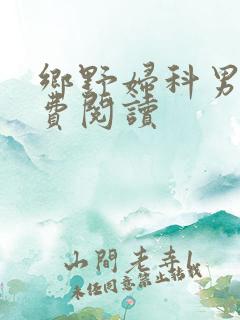 鄉野婦科男
費閱讀
山間老寺
未經同意禁止轉載